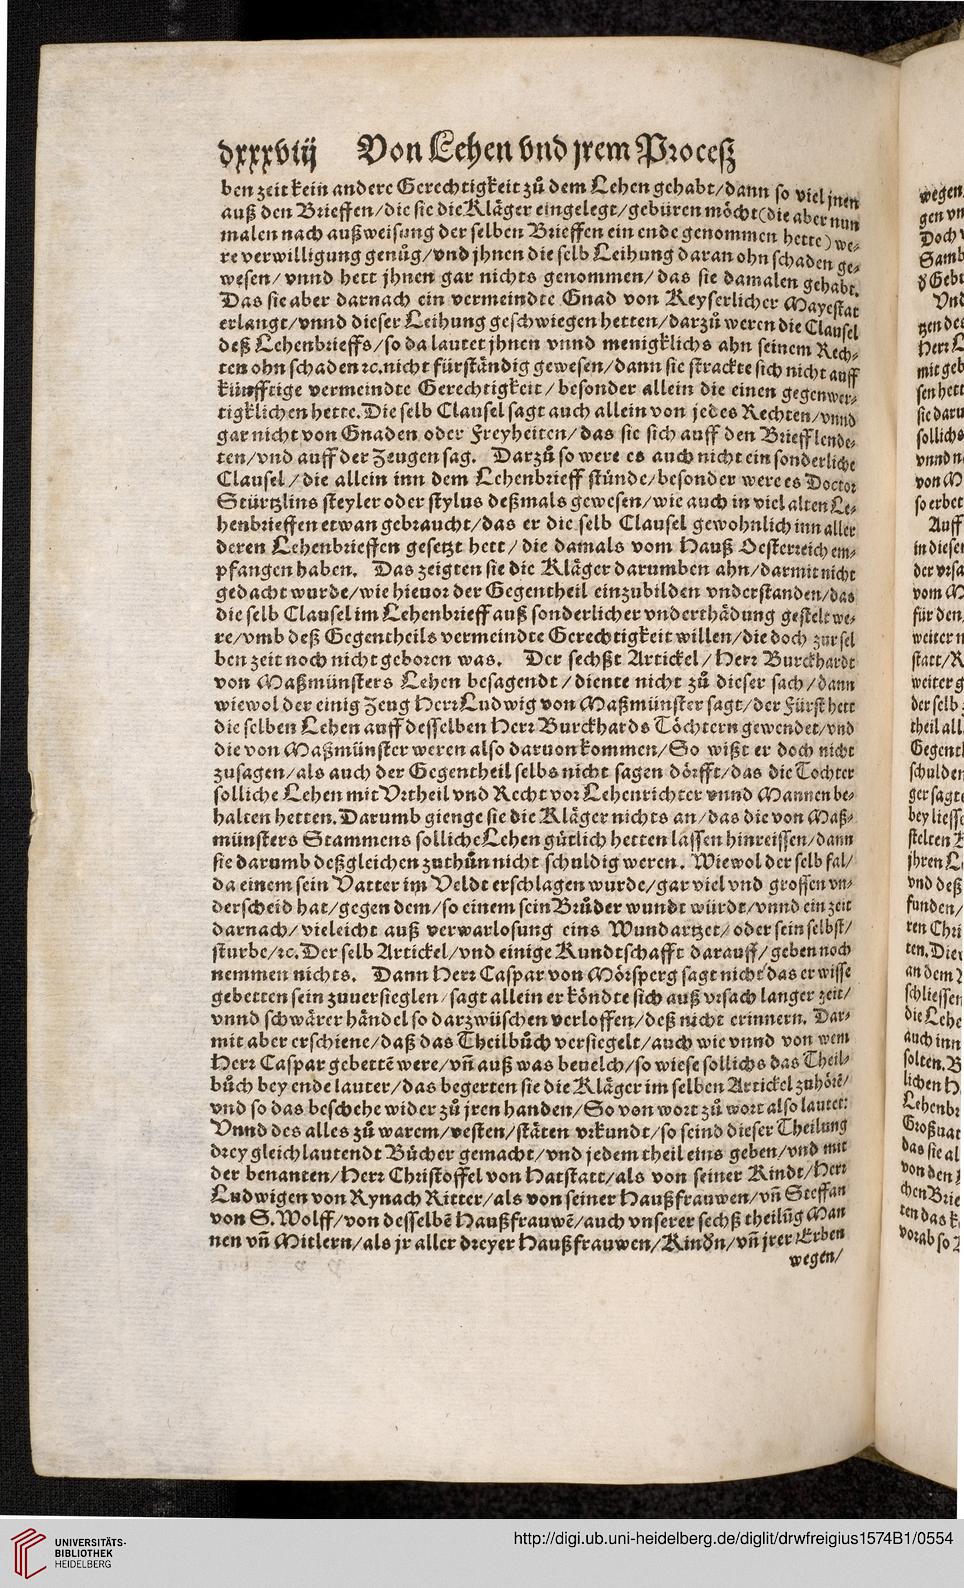 dxxxviij Von Lehen vnd jrem Proceß
ben zeit kein andere Gerechtigkeit zů dem Lehen gehabt/dann so viel jnen
auß den Brieffen/die sie die Kläger eingelegt/gebüren möcht (die aber nun
malen nach außweisung der selben Brieffen ein ende genommen hette) we-
re verwilligung genůg/vnd jhnen die selb Leihung daran ohn schaden ge-
wesen/vnnd hett jhnen gar nichts genommen/das sie damalen gehabt.
Das sie aber darnach ein vermeindte Gnad von Keyserlicher Mayestat
erlangt/vnnd dieser Leihung geschwiegen hetten/darzů weren die Clausel
deß Lehenbrieffs/so da lautet jhnen vnnd menigklichs ahn seinem Rech-
ten ohn schaden ꝛc. nicht fürständig gewesen/dann sie strackte sich nicht auff
künfftige vermeindte Gerechtigkeit/besonder allein die einen gegenwer-
tigklichen hette. Die selb Clausel sagt auch allein von jedes Rechten/vnnd
gar nicht von Gnaden oder Freyheiten/das sie sich auff den Brieff lende-
ten/vnd auff der Zeugen sag. Darzů so were es auch nicht ein sonderliche
Clausel/die allein inn dem Lehenbrieff stünde/besonder were es Doctor
Stürtzlins steyler oder stylus deßmals gewesen/wie auch in viel alten Le-
henbrieffen etwan gebraucht/das er die selb Clausel gewohnlich inn aller
deren Lehenbrieffen gesetzt hett/die damals vom Hauß Oesterreich em-
pfangen haben. Das zeigten sie die Kläger darumben ahn/darmit nicht
gedacht wurde/wie hieuor der Gegentheil einzubilden vnderstanden/das
die selb Clausel im Lehenbrieff auß sonderlicher vnderthädung gestelt we-
re/vmb deß Gegentheils vermeindte Gerechtigkeit willen/die doch zur sel
ben zeit noch nicht geboren was. Der sechßt Artickel/Herr Burckhardt
von Maßmünsters Lehen besagendt/diente nicht zů dieser sach/dann
wiewol der einig Zeug Herr Ludwig von Maßmünster sagt/der Fürst hett
die selben Lehen auff desselben Herr Burckhards Töchtern gewendet/vnd
die von Maßmünster weren also daruon kommen/So wißt er doch nicht
zusagen/als auch der Gegentheil selbs nicht sagen dörfft/das die Tochter
solliche Lehen mit Vrtheil vnd Recht vor Lehenrichter vnnd Mannen be-
halten hetten. Darumb gienge sie die Kläger nichts an/das die von Maß-
münsters Stammens solliche Lehen gütlich hetten lassen hinreissen/dann
sie darumb deßgleichen zuthůn nicht schuldig weren. Wiewol der selb fal/
da einem sein Vatter im Veldt erschlagen wurde/gar viel vnd grossen vn-
derscheid hat/gegen dem/so einem sein Brůder wundt würdt/vnnd ein zeit
darnach/vieleicht auß verwarlosung eins Wundartzet/oder sein selbst/
sturbe/ꝛc. Der selb Artickel/vnd einige Kundtschafft darauff/geben noch
nemmen nichts. Dann Herr Caspar von Mörsperg sagt nicht das er wisse
gebetten sein zuuersieglen/sagt allein er köndte sich auß vrsach langer zeit/
vnnd schwärer händel so darzwüschen verloffen/deß nicht erinnern. Dar-
mit aber erschiene/daß das Theilbůch versiegelt/auch wie vnnd von wem
Herr Caspar gebettē were/vñ auß was beuelch/so wiese sollichs das Theil-
bůch bey ende lauter/das begerten sie die Kläger im selben Artickel zuhörē/
vnd so das beschehe wider zů jren handen/So von wort zů wort also lautet:
Vnnd des alles zů warem/vesten/stäten vrkundt/so seind dieser Theilung
drey gleich lautendt Bücher gemacht/vnd jedem theil eins geben/vnd mit
der benanten/Herr Christoffel von Hatstatt/als von seiner Kindt/Herr
Ludwigen von Rynach Ritter/als von seiner Haußfrauwen/vñ Steffan
von S. Wolff/von desselbē Haußfrauwē/auch vnserer sechß theilūg Man
nen vñ Mitlern/als jr aller dreyer Haußfrauwen/Kindn/vñ jrer Erben
wegen/
UNIVERSITÄTS-
BIBLIOTHEK
HEIDELBERG
http://digi.ub.uni-heidelberg.de/diglit/drwfreigius1574B1/0554